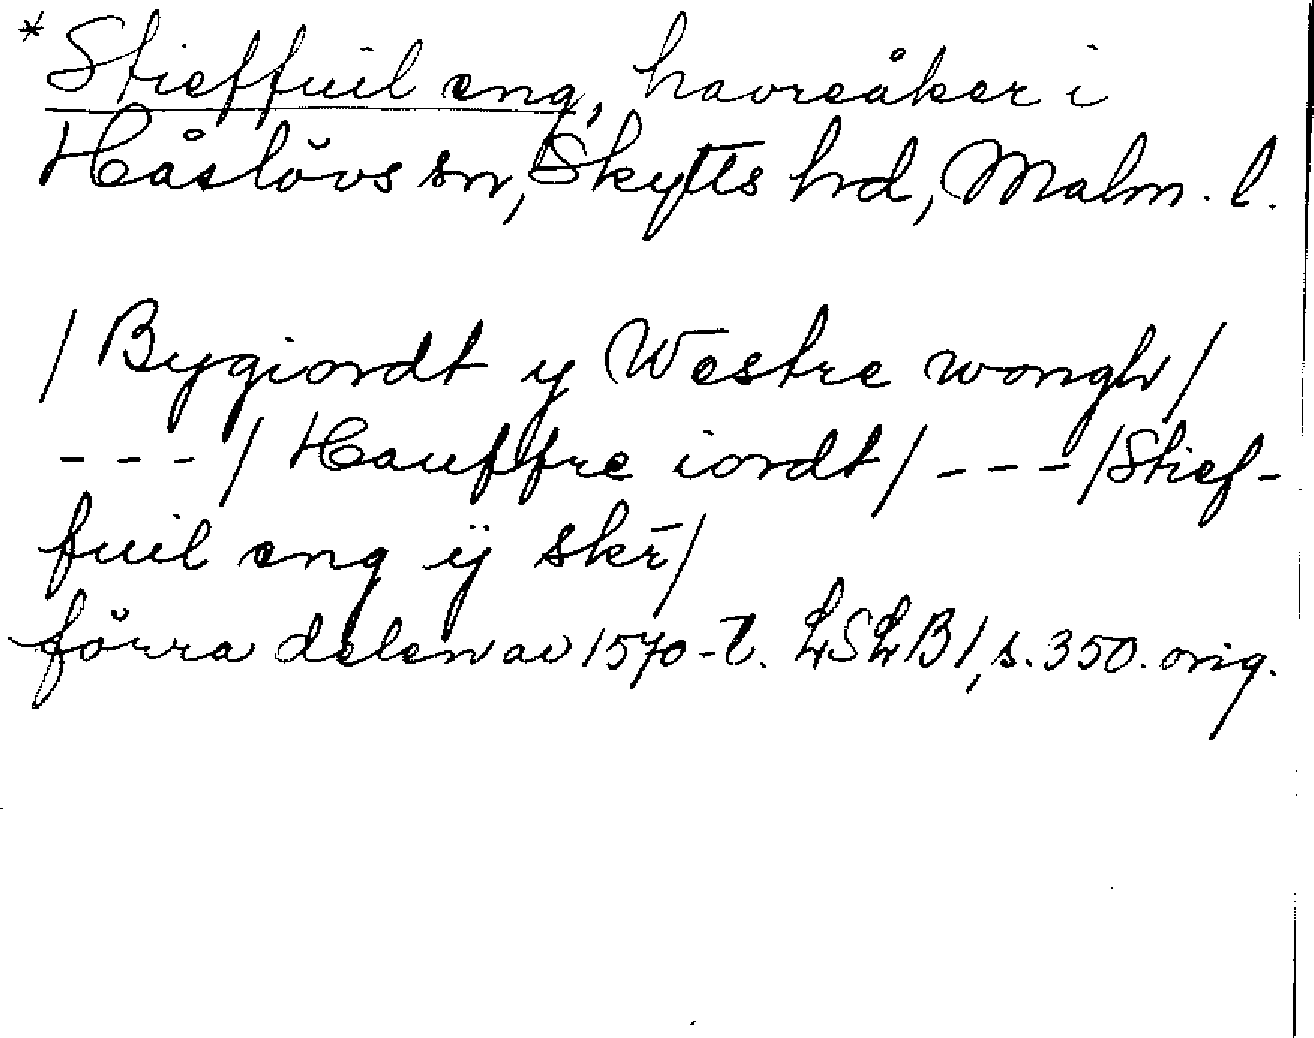 *Stieffuil eng, havreåker i
Håslövs sn, Skytts hd, Malm. l.
/ Bygiordt y Westre wongh /
- - - / Hauffre iordt / - - - / Stief-
fuil eng ÿ skr̄ /
förra delen av 1570-t. LSLB 1, s. 350. orig.